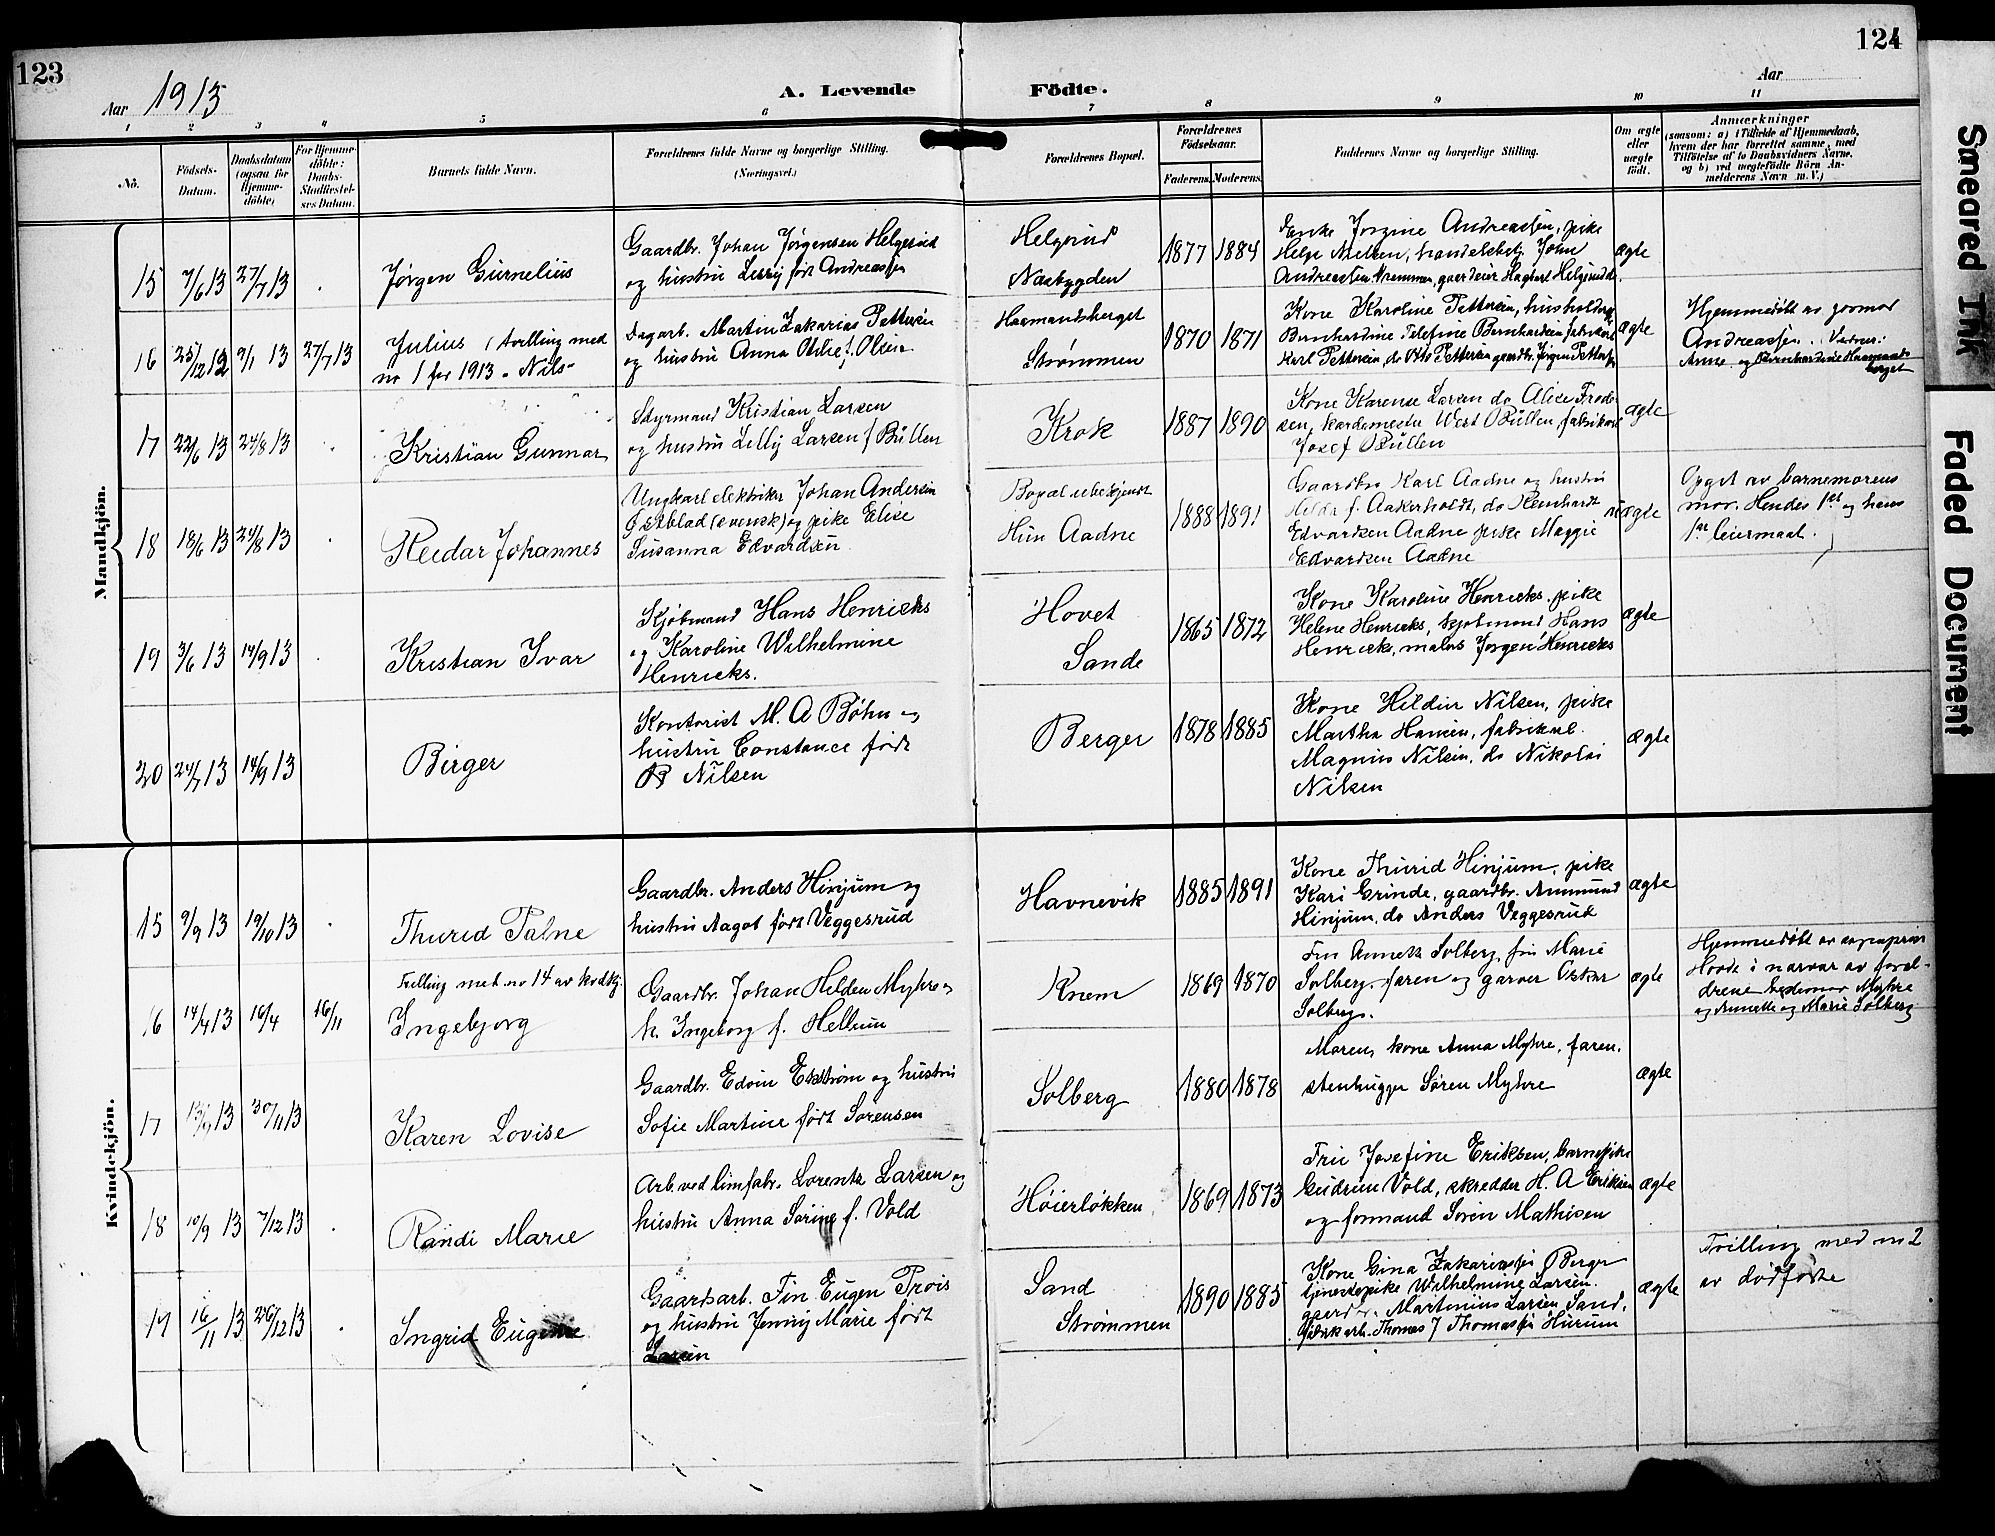 123
124
Aar 1913
A. Levende
Födte.
Aar
1
2
3
4
5
6
7
8
9
10
11
No.
Födsels-
Datum.
Daabsdatum
(ogsaa for
Hjemme-
döbte)
For Hjemme-
döbte:
Daabs-
Stadfæstel-
ses Datum.
Barnets fulde Navn.
Forældrenes fulde Navne og borgerlige Stilling.
(Næringsvei.)
Forældrenes Bopæl.
Forældrenes
Födselsaar.
Faderens.
Moderens.
Faddernes Navne og borgerlige Stilling.
Om ægte
eller
uægte
födt.
Anmærkninger
(saasom: a) i Tilfælde af Hjemmedaab,
hvem der har forrettet samme, med
Tilföielse af to Daabsvidners Navne,
og b) ved uægtefödte Börn An-
melderens Navn m. V.)
Mandkjön.
15 7/6 13 27/7 13 .
Jørgen Gurnelius
Gaardbr. Johan Jørgensen Helgerud
og hustru Lerry født Andreassen
Helgerud
Næsbygden
1877 1884
Enke Jorgine Andreassen, pike
Helga Nielsen, handelsbetj. John
Andreassen Drammen, gaardeier Hagbart Helgerud
ægte
16 25/12 12 9/1 13 27/7 13
Julius (tvilling med
no 1 for 1913 - Nils -
Dagarb. Martin Zakarias Pettersen
og hustru Anna Otilie f. Olsen
Haamandsberget
Strømmen
1870 1871
Kone Karoline Pettersen, husholder
Bernhardine Telefine Bernhardsen fabrikarb
Karl Pettersen, do Otto Pettersen gaardbr. Jørgen Pettersen
ægte
Hjemmedøbt av jormor
Andreassen. Vidner:
Anne og Bernhardine Haamands
berget
17 22/6 13 24/8 13 .
Kristian Gunnar
Styrmand Kristian Larsen
og hustru Lilly Larsen f Büllen
Krok
1887 1890
Kone Karense Larsen do Alice Fred-
sen, kardemester Wert Büllen, fabrikarb
Josef Büllen
ægte
18 18/6 13 24/8 13 .
Reidar Johannes
Ungkarl elektriker Johan Andersen
Østblad (svensk) og pike Elise
Susanna Edvardsen.
Bopæl ubekjendt
Hun Aadne
1888 1891
Gaardbr Karl Aadne og hustru
Hilda f. Aakerholdt, do Reinhardt
Edvardsen Aadne pike Maggie
Edvardsen Aadne
uægte
Opget av barnemorens
mor. Hendes 1ste og hans
1ste leiermaal.
19 3/6 13 14/9 13 .
Kristian Ivar
Kjøbmand Hans Henricks
og Karoline Wilhelmine
Henricks.
Hovet
Sande
1865 1872
Kone Karoline Henricks, pike
Helene Henricks, kjøbmand Hans
Henricks, maler Jørgen Henricks
ægte
20 24/7 13 14/9 13
Birger
Kontorist M. A Bøhn og
hustru Constance født
B Nilsen
Berger
1878 1885
Kone Hildur Nilsen, pike
Martha Hansen, fabrikarb.
Magnus Nilsen, do Nikolai
Nilsen
ægte
Kvindekjön.
15 9/9 13 19/10 13 .
Thurid Palne
Gaardbr. Anders Hinjum og
hustru Aagot født Veggesrud
Havnevik
1885 1891
Kone Thurid Hinjum, pike
Kari Grinde, gaardbr. Ammund
Hinjum, do Anders Veggesrud
ægte
16 14/4 13 16/4 16/11
Tvilling med no 14 av kvdkj.
Ingebjorg
Gaardbr. Johan Helden Myhre og
h. Ingeborg f. Hellum
Knem
1869 1870
Fru Annette Solberg, frn Marie
Solberg, faren og garver Oskar
Solberg.
ægte
Hjemmedøbt av sogneprest
Hovde i nærvær av forel-
drene bestemor Myhre
og Annette og Marie Solberg
17 13/9 13 30/11 13
Karen Lovise
Gaardbr. Edvin Ekstrøm og hustru
Sofie Martine født Sørensen
Solberg
1880 1878
Moren, kone Anna Myhre, faren,
stenhugger Søren Myhre
ægte
18 10/9 13 7/12 13 .
Randi Marie
Arb. ved limfabr. Lorentz Larsen og
hustru Anna Sorine f. Vold
Høierløkken
1869 1873
Fru Josefine Eriksen, barnepike
Gudrun Vold, skredder H. A Eriksen
og formand Soren Mathisen
ægte
19 16/11 13 26/12 13 .
Ingrid Eugenie
Gaardsarb. Fin Eugen Prois
og hustru Jenny Marie født
Larsen
Sand
Strømmen
1890 1885
Kone Gina Zakariassen Berger
tjenestepike Wilhelmine Larsen.
gaardbr. Martinius Larsen Sand,
fabrikarb. Thomas J Thomassen Hurum
ægte
Tvilling med no 2
av dødfødte
Smeared Ink
Faded Document